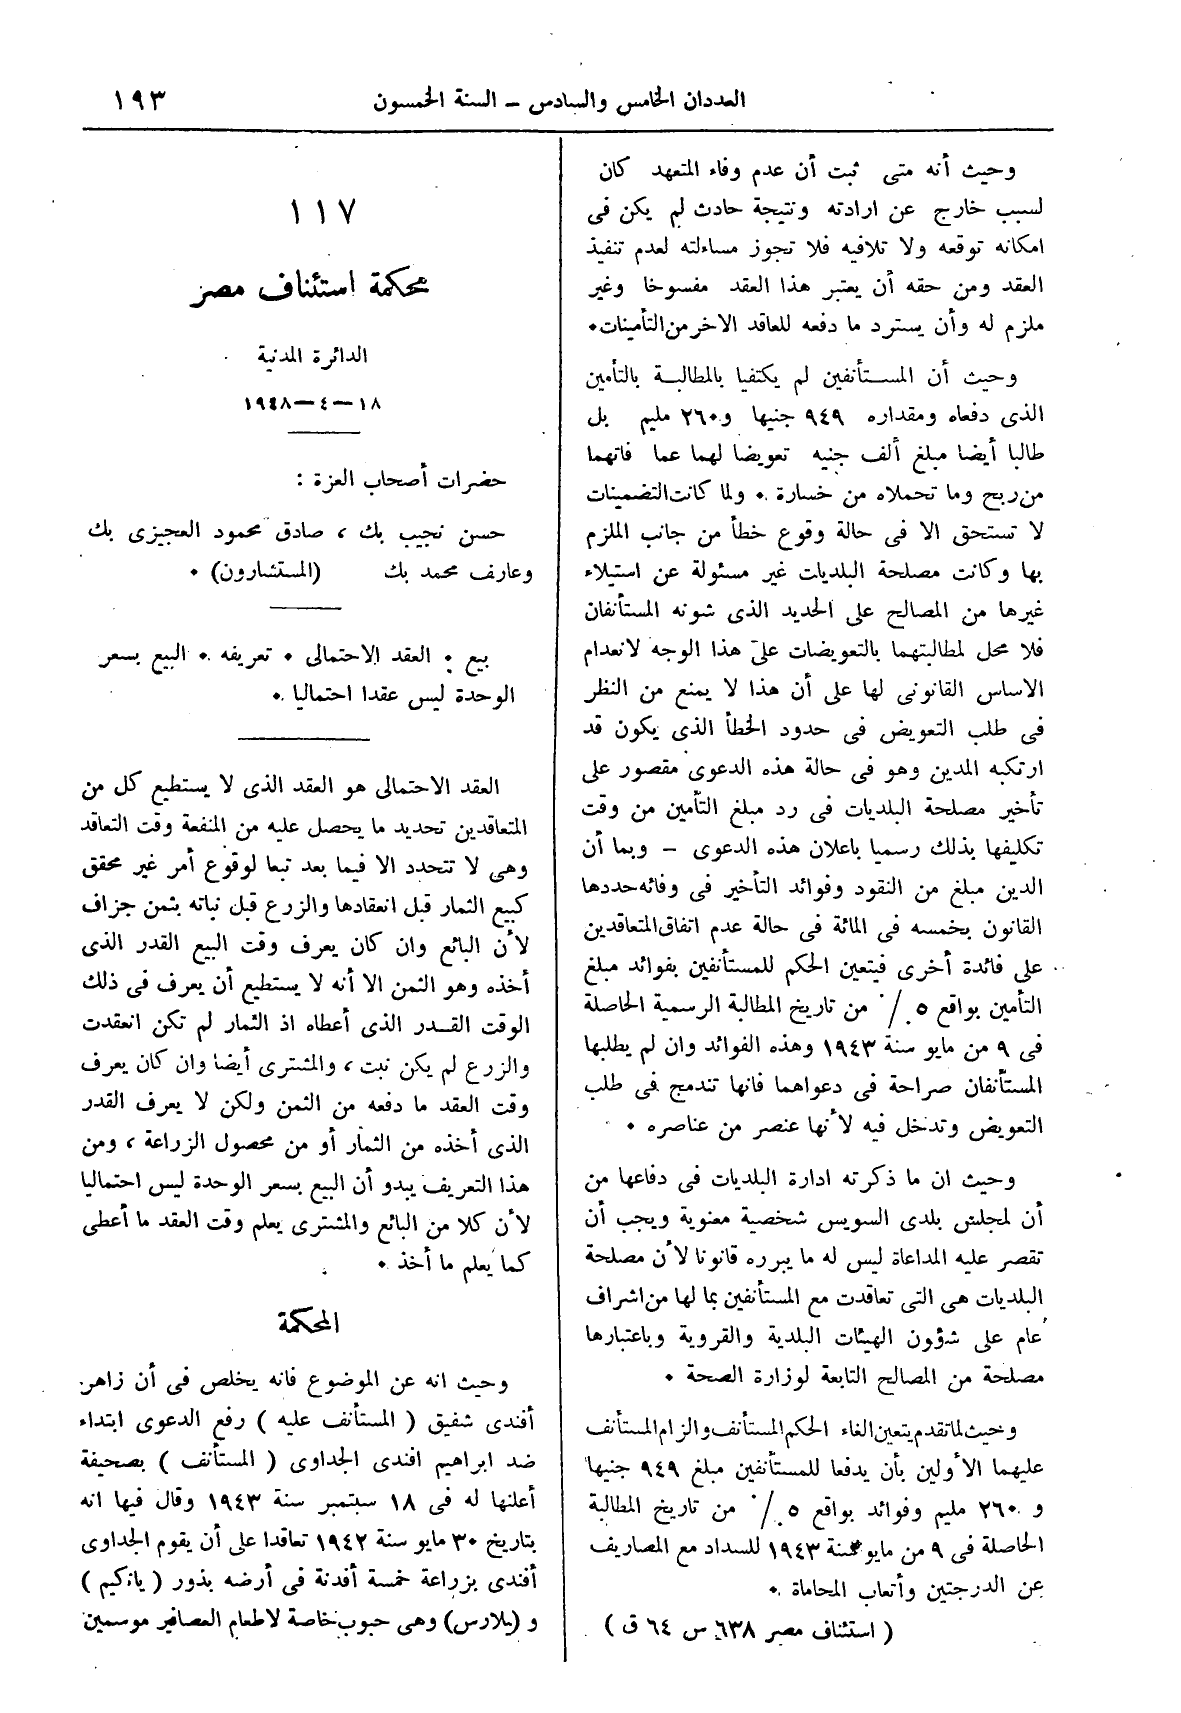 العددان الخامس والسادس – السنة الخمسون
١٩٣
وحيث أنه متى ثبت أن عدم وفاء المتعهد كان
لسبب خارج عن ارادته ونتيجة حادث لم يكن فى
امكانه توقعه ولا تلافيه فلا تجوز مساءلته لعدم تنفيذ
العقد ومن حقه أن يعتبر هذا العقد مفسوخا وغير
ملزم له وأن يسترد ما دفعه للعاقد الاخر من التأمينات٠
وحيث أن المستأنفين لم يكتفيا بالمطالبة بالتأمين
الذى دفعاه ومقداره ٩٤٩ جنيها و٢٦٠ مليم بل
طالبا أيضا مبلغ ألف جنيه تعويضا لهما عما فاتهما
من ربح وما تحملاه من خسارة ٠ ولما كانت التضمينات
لا تستحق الا فى حالة وقوع خطأ من جانب الملزم
بها وكانت مصلحة البلديات غير مسئولة عن استيلاء
غيرها من المصالح على الحديد الذى شونه المستأنفان
فلا محل لمطالبتهما بالتعويضات على هذا الوجه لانعدام
الاساس القانونى لها على أن هذا لا يمنع من النظر
فى طلب التعويض فى حدود الخطأ الذى يكون قد
ارتكبه المدين وهو فى حالة هذه الدعوى مقصور على
تأخير مصلحة البلديات فى رد مبلغ التأمين من وقت
تكليفها بذلك رسميا باعلان هذه الدعوى – وبما أن
الدين مبلغ من النقود وفوائد التأخير فى وفائه حددها
القانون بخمسه فى المائة فى حالة عدم اتفاق المتعاقدين
على فائدة أخرى فيتعين الحكم للمستأنفين بفوائد مبلغ
التأمين بواقع ٥ ٠/٠ من تاريخ المطالبة الرسمية الحاصلة
فى ٩ من مايو سنة ١٩٤٣ وهذه الفوائد وان لم يطلبها
المستأنفان صراحة فى دعواهما فانها تندمج فى طلب
التعويض وتدخل فيه لأنها عنصر من عناصره ٠
وحيث ان ما ذكرته ادارة البلديات فى دفاعها من
أن لمجلس بلدى السويس شخصية معنوية ويجب أن
تقصر عليه المداعاة ليس له ما يبرره قانونا لأن مصلحة
البلديات هى التى تعاقدت مع المستأنفين بما لها من اشراف
عام على شؤون الهيئات البلدية والقروية وباعتبارها
مصلحة من المصالح التابعة لوزارة الصحة ٠
وحيث لما تقدم يتعين الغاء الحكم المستأنف والزام المستأنف
عليهما الأولين بأن يدفعا للمستأنفين مبلغ ٩٤٩ جنيها
و ٢٦٠ مليم وفوائد بواقع ٥ ٠/٠ من تاريخ المطالبة
الحاصلة فى ٩ من مايو سنة ١٩٤٣ للسداد مع المصاريف
عن الدرجتين وأتعاب المحاماة ٠
( استئناف مصر ٦٣٨ س ٦٤ ق )
١١٧
محكمة استئناف مصر
الدائرة المدنية
١٨–٤–١٩٤٨
حضرات أصحاب العزة :
حسن نجيب بك ، صادق محمود العجيزى بك
وعارف محمد بك (المستشارون) ٠
بيع ٠ العقد الاحتمالى ٠ تعريفه ٠ البيع بسعر
الوحدة ليس عقدا احتماليا ٠
العقد الاحتمالى هو العقد الذى لا يستطيع كل من
المتعاقدين تحديد ما يحصل عليه من المنفعة وقت التعاقد
وهى لا تتحدد الا فيما بعد تبعا لوقوع أمر غير محقق
كبيع الثمار قبل انعقادها والزرع قبل نباته بثمن جزاف
لأن البائع وان كان يعرف وقت البيع القدر الذى
أخذه وهو الثمن الا أنه لا يستطيع أن يعرف فى ذلك
الوقت القدر الذى أعطاه اذ الثمار لم تكن انعقدت
والزرع لم يكن نبت ، والمشترى أيضا وان كان يعرف
وقت العقد ما دفعه من الثمن ولكن لا يعرف القدر
الذى أخذه من الثمار أو من محصول الزراعة ، ومن
هذا التعريف يبدو أن البيع بسعر الوحدة ليس احتماليا
لأن كلا من البائع والمشترى يعلم وقت العقد ما أعطى
كما يعلم ما أخذ ٠
المحكمة
وحيث انه عن الموضوع فانه يخلص فى أن زاهر
أفندى شفيق ( المستأنف عليه ) رفع الدعوى ابتداء
ضد ابراهيم افندى الجداوى ( المستأنف ) بصحيفة
أعلنها له فى ١٨ سبتمبر سنة ١٩٤٣ وقال فيها انه
بتاريخ ٣٠ مايو سنة ١٩٤٢ تعاقدا على أن يقوم الجداوى
أفندى بزراعة خمسة أفدنة فى أرضه بذور ( يانكيم )
و (بلارس) وهى حبوب خاصة لاطعام العصافير موسمين